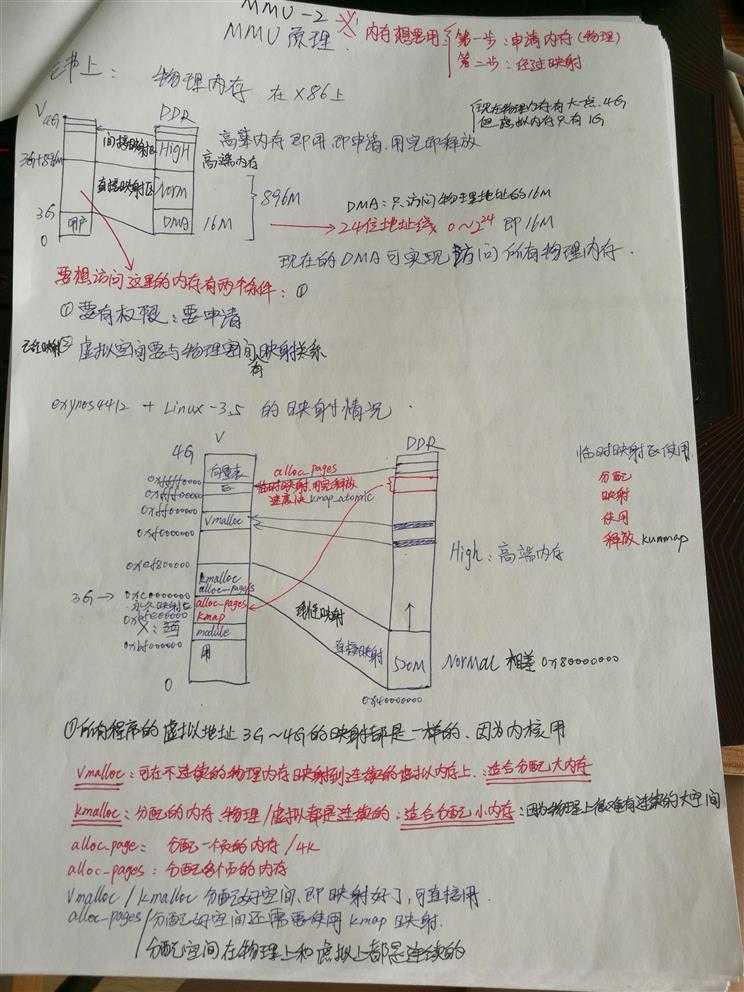 MMU-2
MMU 原理.
内存想要用
第一步:申请内存(物理)
第二步:经过映射
书上: 物理内存 在 X86上
现在物理内存有大一点 4G
但虚拟内存只有1G
V
DDR
4G
间接映射区
HIGH
高端内存 即用,即申请,用完即释放
高端内存
3G+896M
直接映射区
Norm
896M
DMA:只访问物理地址的16M
3G
用户
DMA
16M
24位地址线 0~2^24 即16M
0
现在的DMA可实现访问所有物理内存.
要想访问这里的内存有两个条件: ①
① 要有权限:要申请
② 虚拟空间要与物理空间有映射关系
exynos4412 + Linux-3.5 的映射情况.
V
DDR
4G
向量表
alloc_pages
临时映射区使用
临时映射,用完释放
速度快 kmap_atomic
分配
映射
使用
释放 kunmap
0xffff0000
0xfff00000
0xff000000
vmalloc
0xf0000000
0xef800000
High:高端内存
kmalloc
alloc_pages
3G →
0xc0000000
永久映射区
alloc_pages
kmap
线性映射
0xbfe00000
module
直接映射
0xbf000000
用
520M
Normal 相差 0x80000000
0
0x40000000
①所有程序的虚拟地址 3G~4G的映射都是一样的,因为内核用
vmalloc:可在不连续的物理内存映射到连续的虚拟内存上.适合分配大内存
kmalloc:分配的内存 物理/虚拟都是连续的:适合分配小内存:因为物理上很难有连续的大空间
alloc_page: 分配一个页的内存/4K
alloc_pages: 分配多个页的内存
vmalloc / kmalloc 分配好空间,即映射好了,可直接用.
alloc_pages/分配好空间还需要使用 kmap 映射.
分配空间在物理上和虚拟上都是连续的